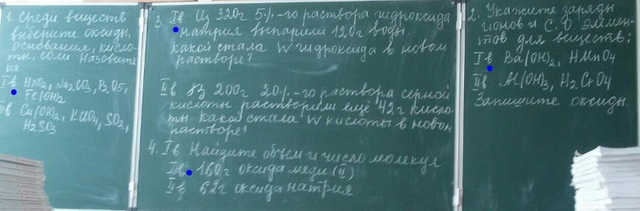 1. Среди веществ
выберите оксиды,
основания, кисло-
ты, соли. Назовите
их
Iв HNO3, Na2CO3, P2O5,
Fe(OH)2
IIв Ca(OH)2, SO2,
H2SO3
3. Iв Из 320г 5%-го раствора гидроксида
натрия выпарили 120г воды.
какой стала W гидроксида в новом
растворе?
IIв В 200г 20%-го раствора серной
кислоты растворили ещё 42г кисло
ты какой стала W кислоты в новом
растворе?
4. Iв Найдите объем и число молекул
Iв 160г оксида меди (II)
IIв 62г оксида натрия
2. Укажите заряды
ионов и С.О. элемен-
тов для веществ:
Iв Ba(OH)2, HMnO4
IIв Al(OH)3, H2CrO4
Запишите оксиды.